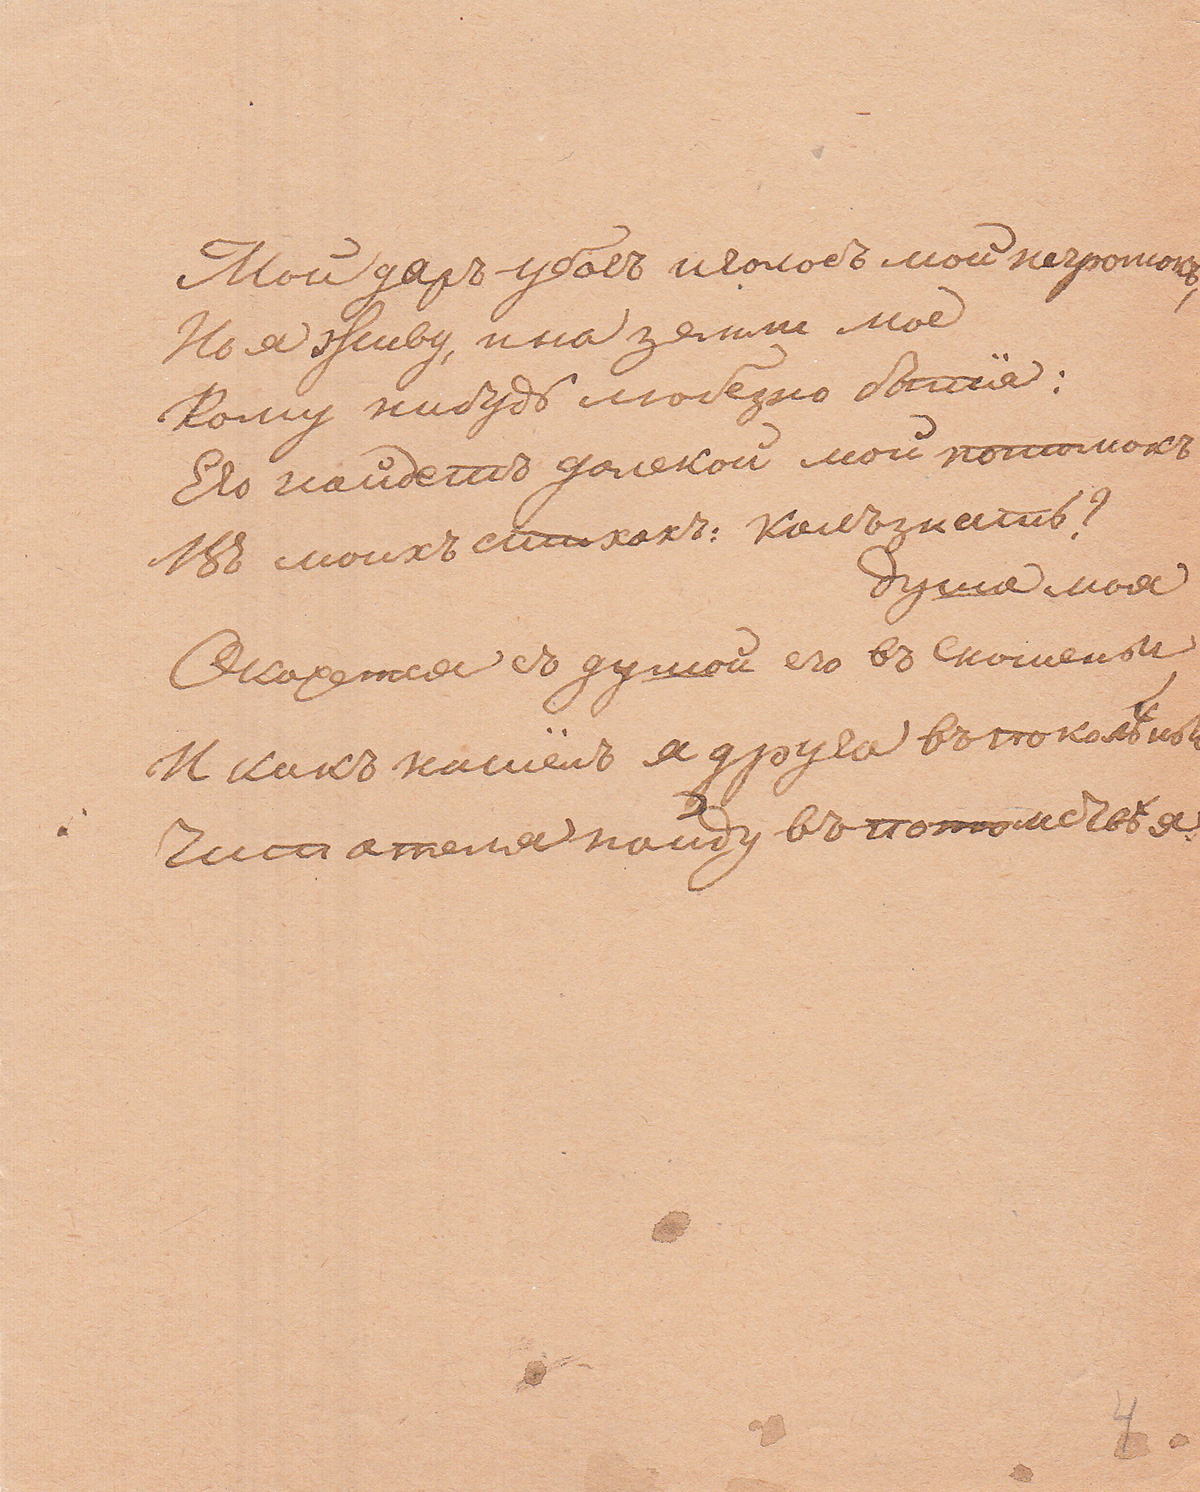 Мой даръ убогъ и голосъ мой негромокъ,
Но я живу, и на земли мое
Кому нибудь любезно бытiе:
Его найдетъ далекой мой потомокъ
Въ моихъ стихахъ: какъ знать?
душа моя
Окажется съ душой его въ сношеньи,
И какъ нашёлъ я друга въ поколѣньи
Читателя найду въ потомствѣ я.
4